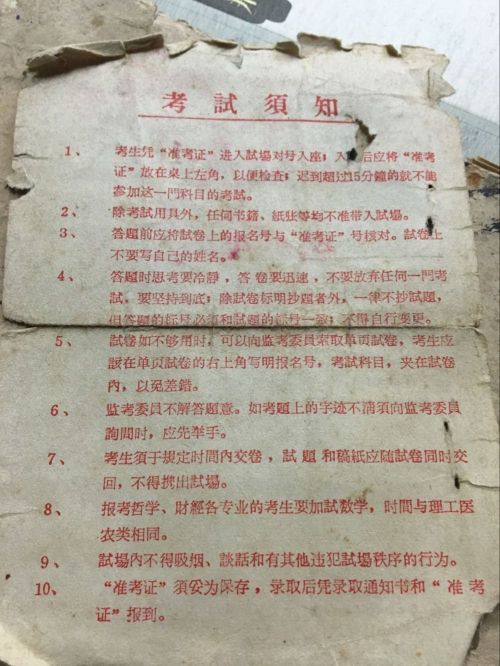 考試須知
1、 考生凭“准考证”进入試場对号入座；入 后应将“准考
证”放在桌上左角，以便检查；迟到超过15分鐘的就不能
参加这一門科目的考試。
2、 除考試用具外，任何书籍、紙张等均不准带入試場。
3、 答題前应将試卷上的报名号与“准考证”号核对。試卷上
不要写自己的姓名。
4、 答題时思考要冷靜，答卷要迅速，不要放弃任何一門考
試。要坚持到底；除試卷标明抄題者外，一律不抄試題，
但答題的标号必須和試題的标号一致；不得自行变更。
5、 試卷如不够用时，可以向监考委員索取单頁試卷，考生应
該在单頁試卷的右上角写明报名号，考試科目，夹在試卷
內，以免差錯。
6、 监考委員不解答題意。如考題上的字迹不清須向监考委員
詢問时，应先举手。
7、 考生須于規定时間內交卷，試題和稿紙应随試卷同时交
回，不得携出試場。
8、 报考哲学、財經各专业的考生要加試数学，时間与理工医
农类相同。
9、 試場內不得吸烟、談話和有其他违犯試場秩序的行为。
10、 “准考证”須妥为保存，录取后凭录取通知书和“准考
证”报到。